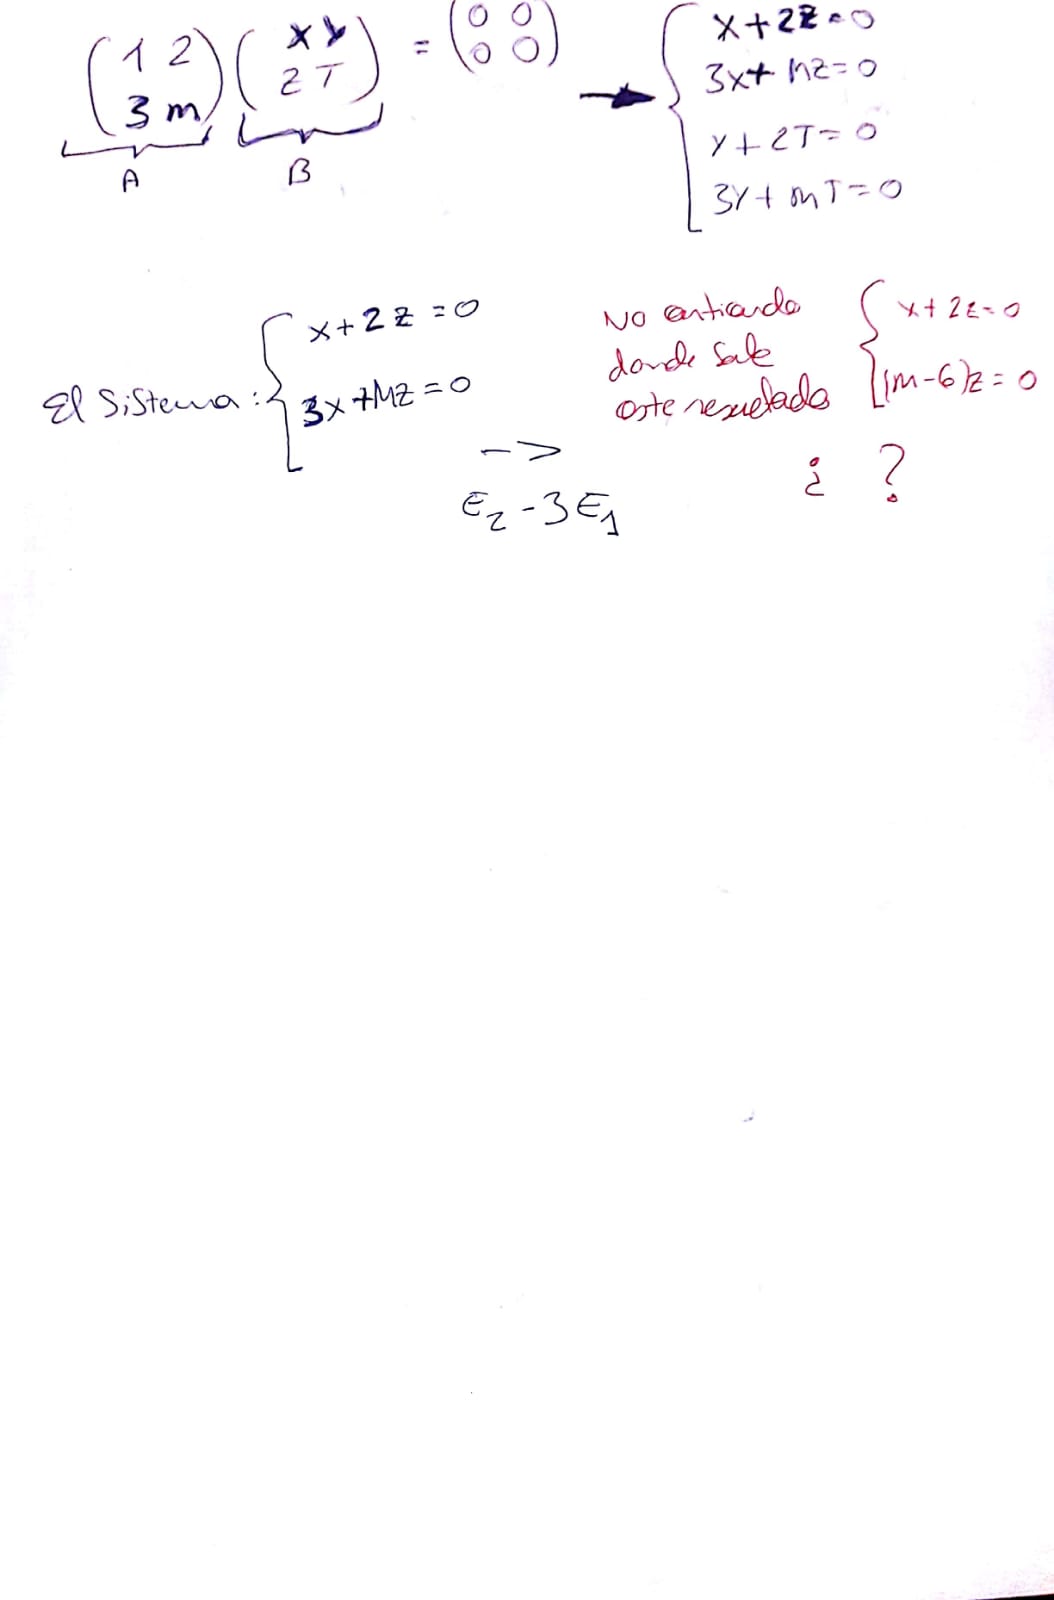 (1 2) (x y) = (0 0)
(3 m) (z T) (0 0)
A B
→ { x+2z=0
3x+mz=0
y+2T=0
3y+mT=0
El Sistema: { x+2z=0
3x+Mz=0
-> E₂-3E₁
No entiendo
donde sale
este resueltado
{ x+2z=0
(m-6)z=0
¿ ?